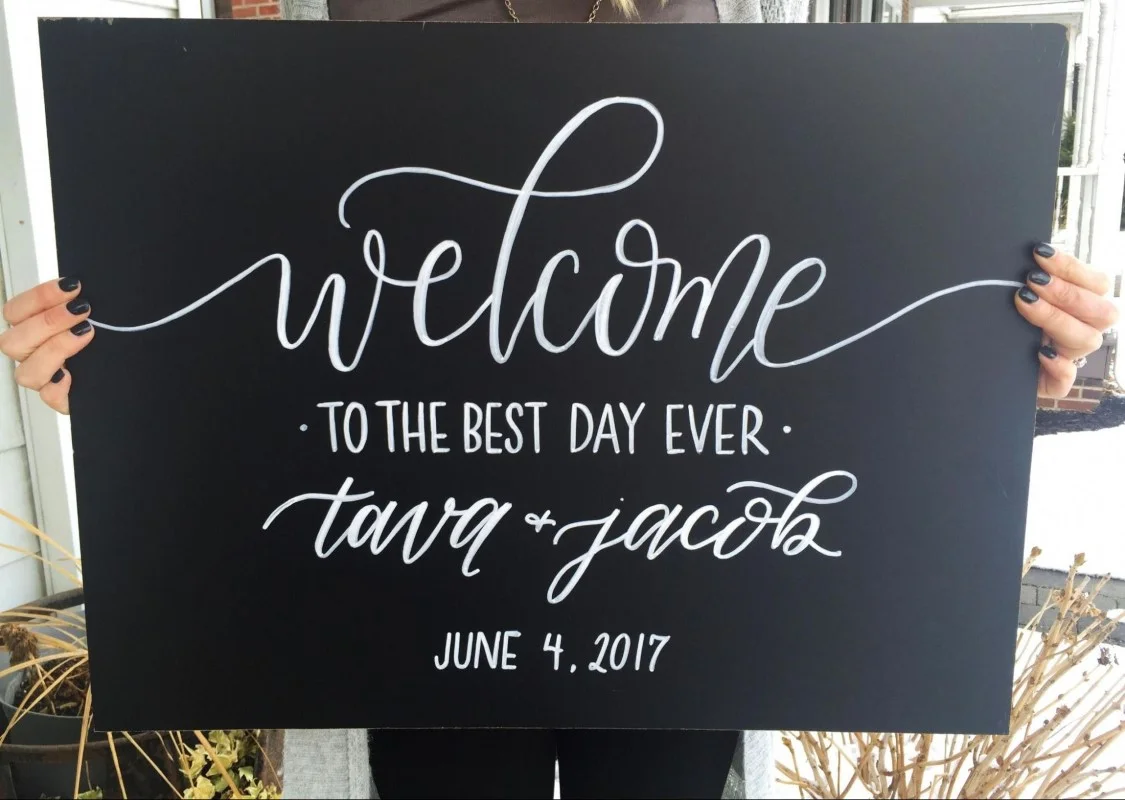 welcome
· TO THE BEST DAY EVER ·
tava + jacob
JUNE 4, 2017